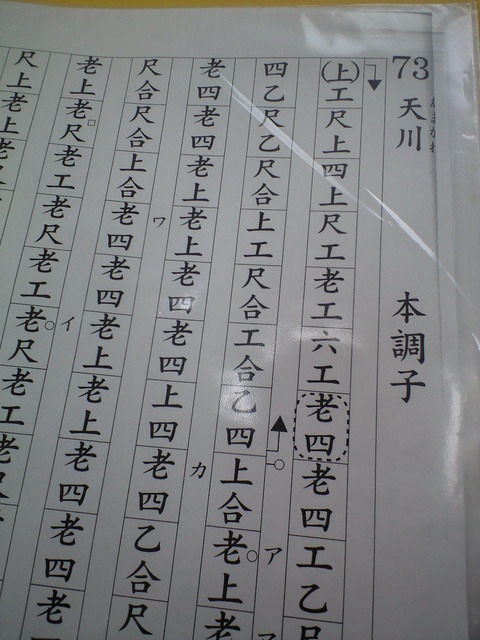 73 天川 本調子
(上)工尺上四上尺工老工六工老四老四工乙尺
ア
四乙尺乙尺合上工尺合工合乙四上合老上老
カ
老四老四老上老上老四老四上四老四乙合尺
ワ
尺合尺合上合老四老四老上老上老四老四老
イ
老上老尺老工老尺老工老尺老工老尺
尺上老上老